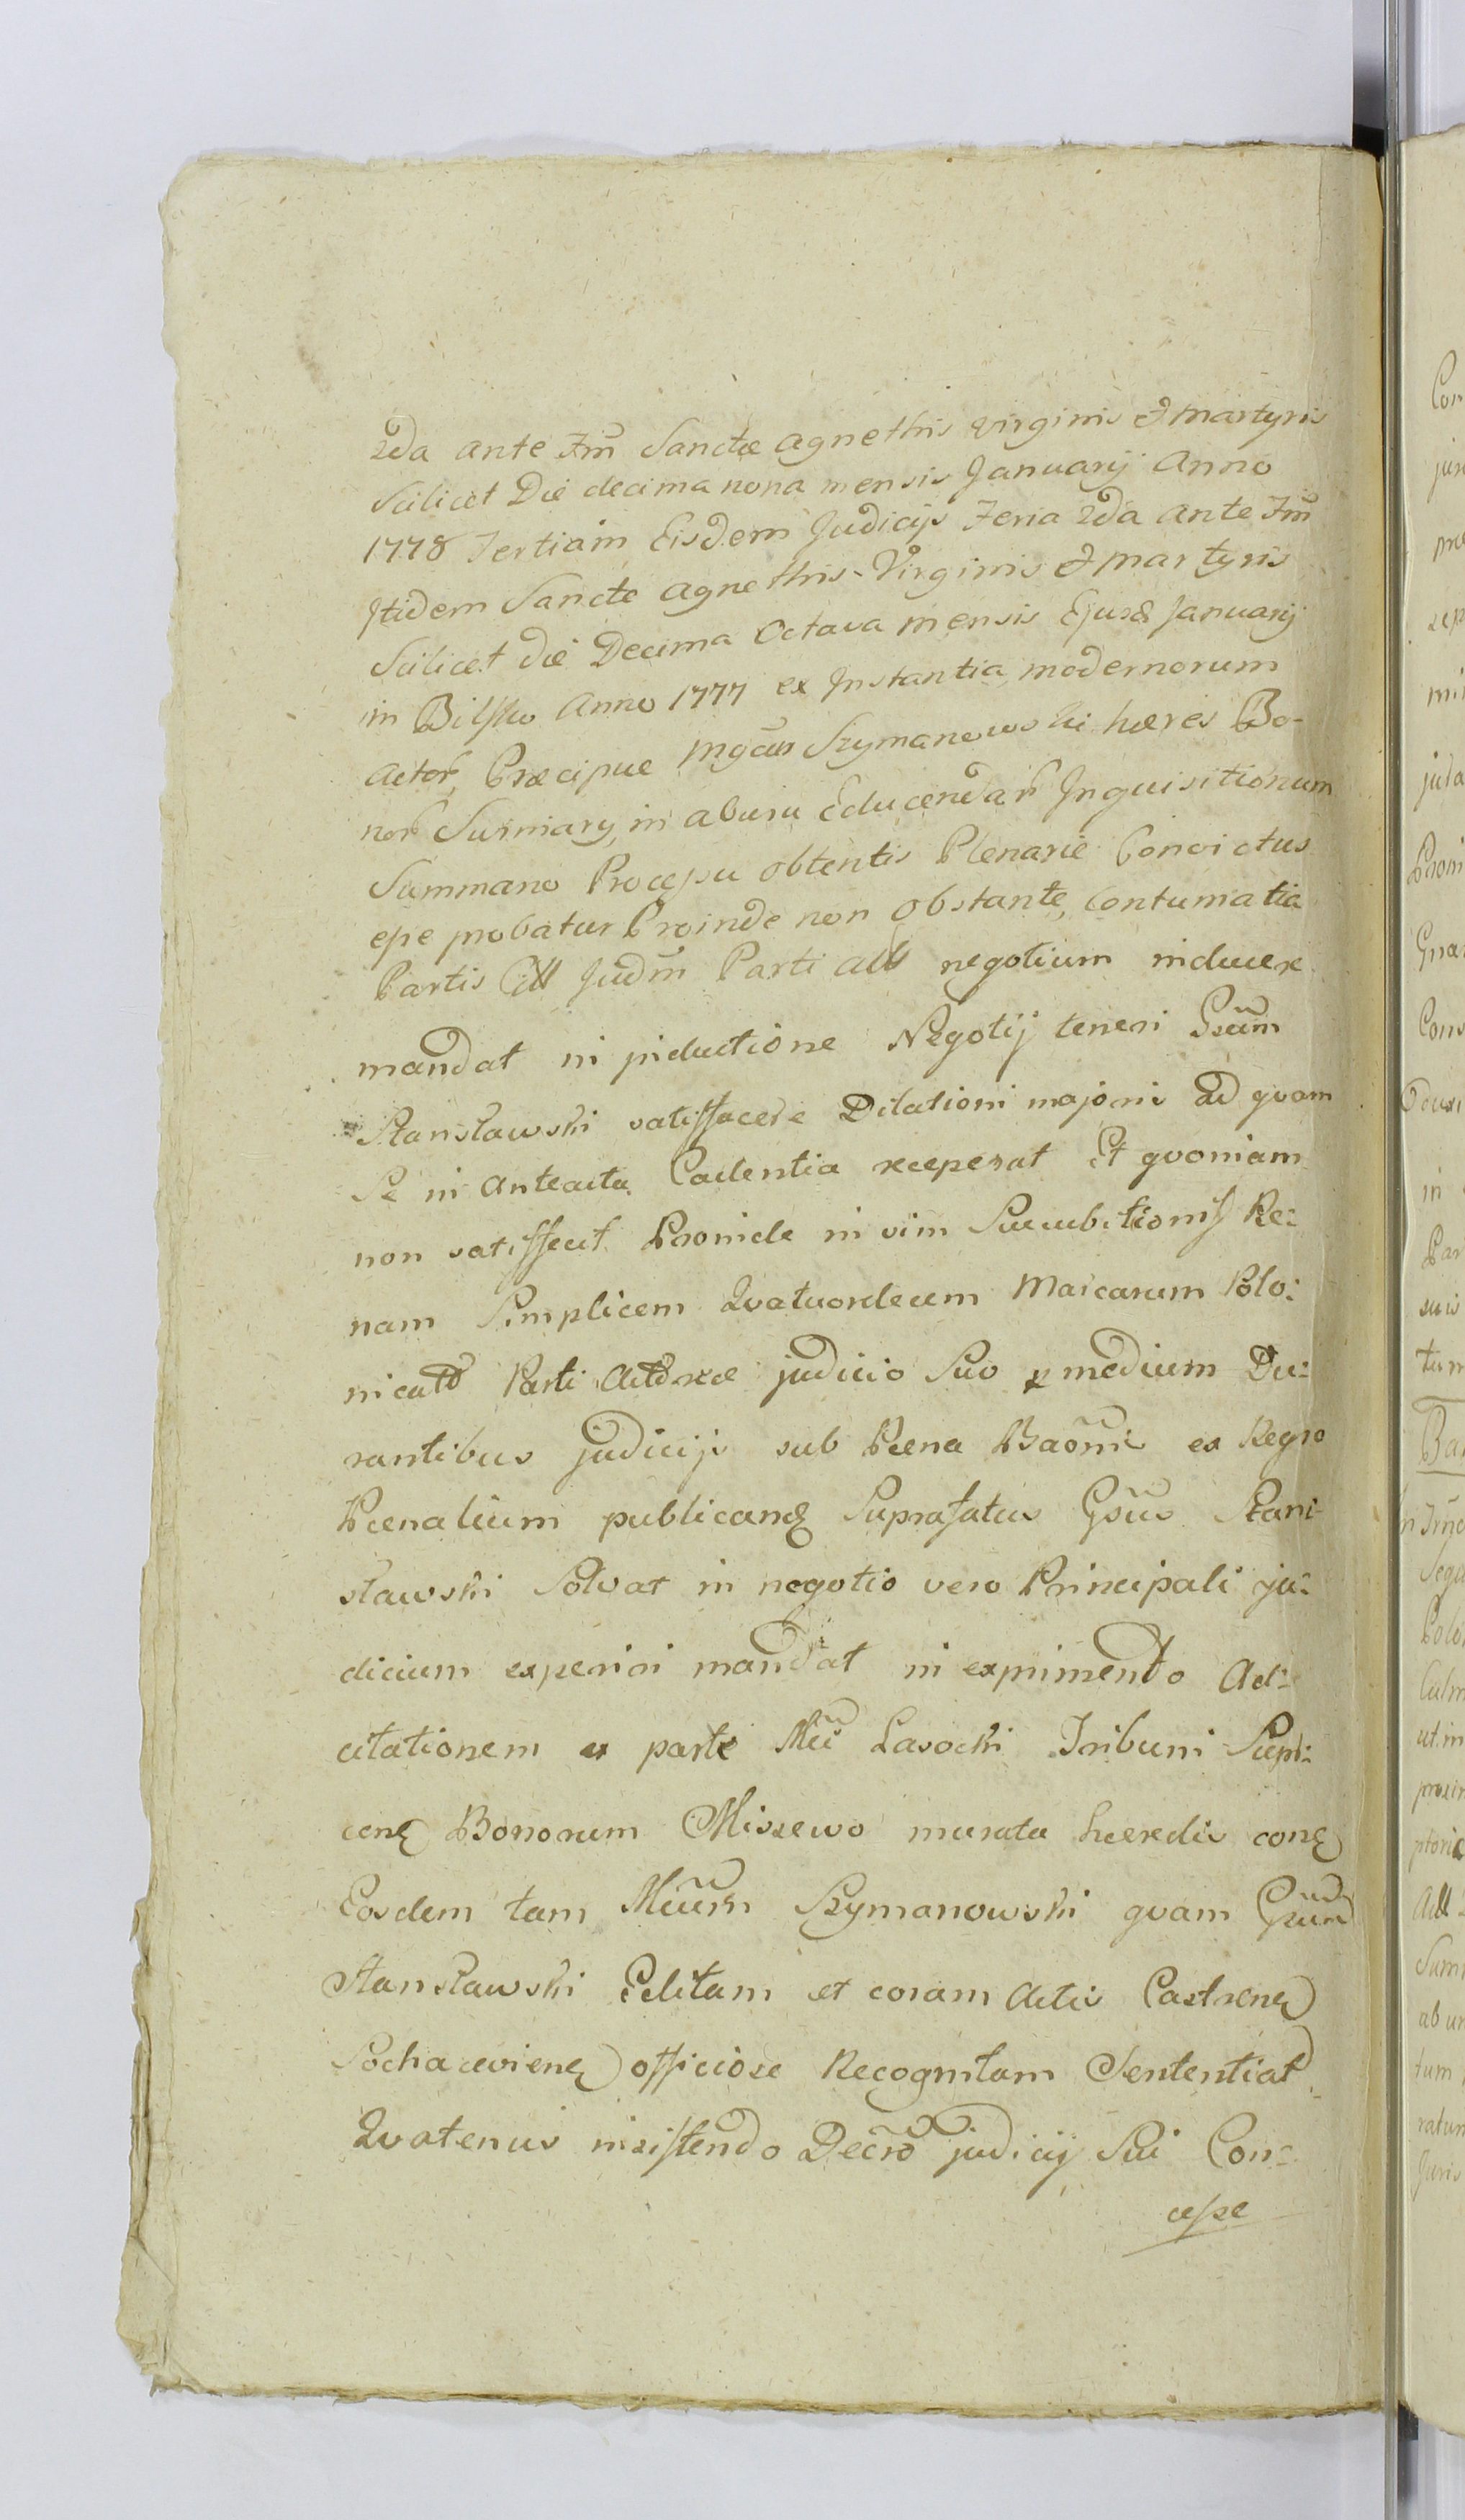 2da ante Fm̃ Sanctæ Agnethis Virginis & Martyris
Scilicet Die decima nona mensis Januarij Anno
1778 Tertiam Eisdem Judicijs Feria 2da ante Fm̃
Itidem Sancte Agnethis Virginis & Martyris
Scilicet die Decima Octava mensis Ejusd Januarij
in Bilsko Anno 1777 ex Instantia modernorum
Actor, Præcipue Mgcus Szymanowski hæres Bo-
nor in abusu Educendar Inquisitionum
Summario Processu obtentis Plenarie Convictus
esse probatur Proinde non obstante Contumatia
Partis Citt Judm̃ Parti Act negotium inducere
mandat in inductione Negotij teneri Gsum̃
Stansławski satisfacere Dilationi majori Ad quam
Se in Anteacta Cadentia receperat Et quoniam
non satisfecit Proinde in vim Succubitionis Pœ:
nam Simplicem Quatuordecim Marcarum Polo:
nicalʳ Parti Actoreæ judicio Suo p medium Du:
rantibus judicijs sub Pœna Baõnis ex Regro
Pœnalium publicand Suprafatus Gsũs Stani-
sławski Solvat in negotio vero Principali ju:
dicium experiri mandat in exprimendo Ad:
citationem ex parte Mci Lasocki Tribuni
Bonorum Miszewo murata hæredis cont
Eosdem tam Mcum Szymanowski quam Gsum
Stansławski Editam et coram Actis Castren
Sochacevien officiose Recognitam Sententiat
Quatenus insistendo Decro judicij Sui Con:
cesse